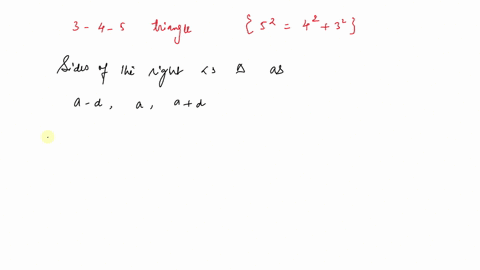 3 - 4 - 5 triangle { 5² = 4² + 3² }
Sides of the right <s Δ as
a - d, a, a + d